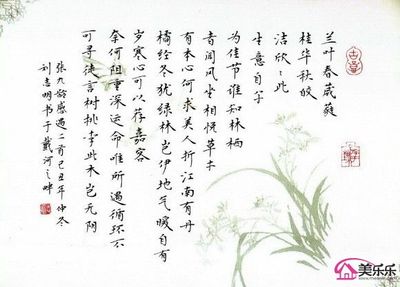 兰叶春葳蕤
桂华秋皎
洁欣〻此
生意自尔
为佳节谁知林栖
者闻风坐相悦草木
有本心何求美人折江南有丹
橘经冬犹绿林岂伊地气暖自有
岁寒心可以荐嘉客
奈何阻重深运命唯所遇循环不
可寻徒言树桃李此木岂无阴
张九龄感遇二首己丑年仲冬
刘志明书于戴河之畔
美乐乐